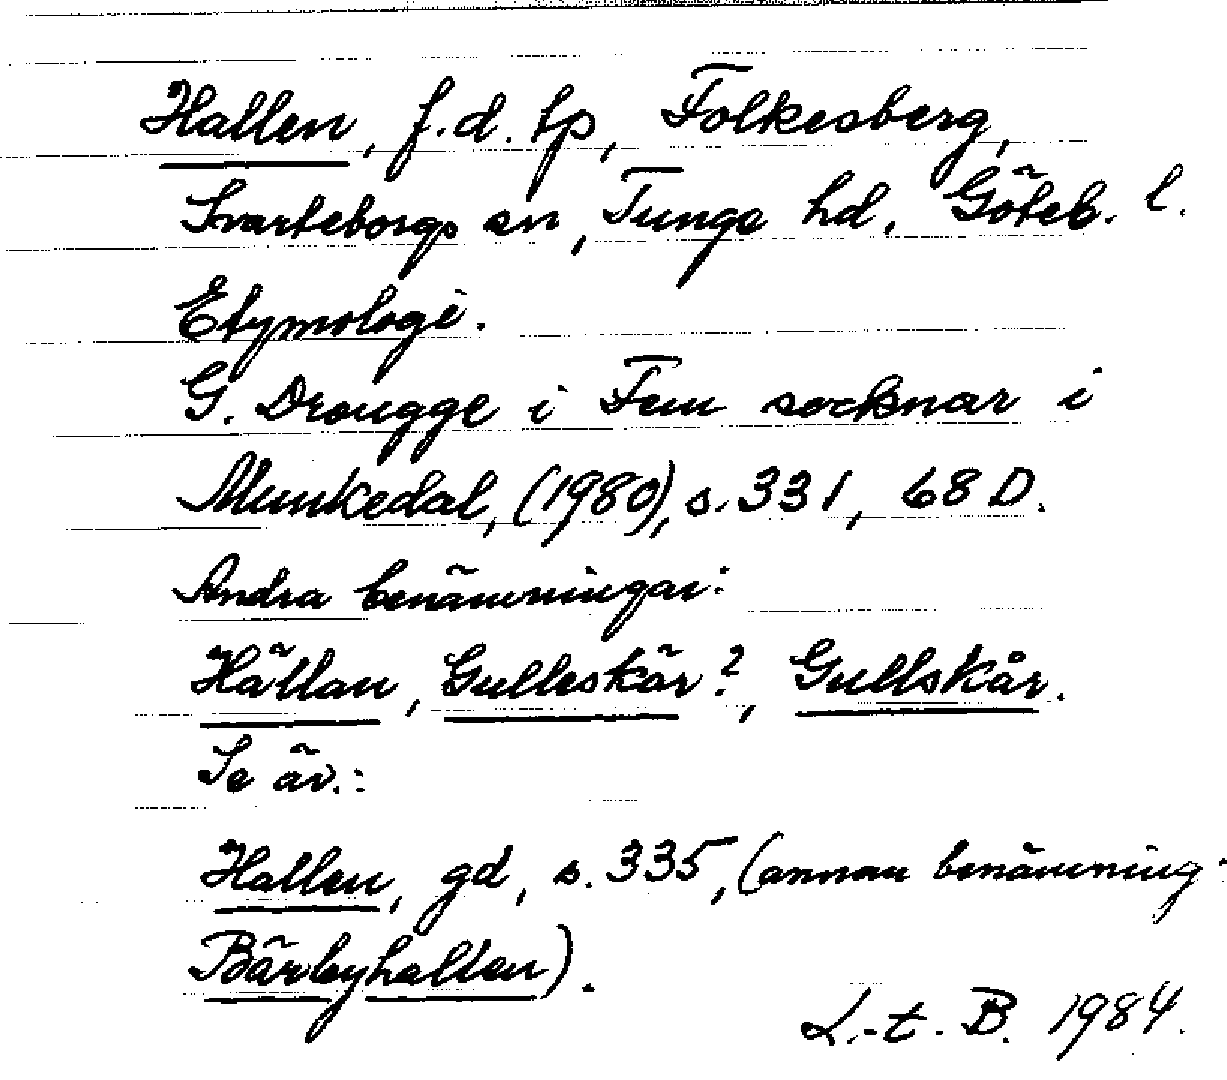 Hallen, f.d. tp, Folkesberg,
Svarteborgs sn, Tunge hd, Göteb. l.
Etymologi.
G. Drougge i Fem socknar i
Munkedal, (1980), s. 331, 68 D.
Andra benämningar:
Hällan, Gulleskär?, Gullskår.
Se äv.:
Hallen, gd, s. 335, (annan benämning:
Bärbyhallen).
L.-t. B. 1984.